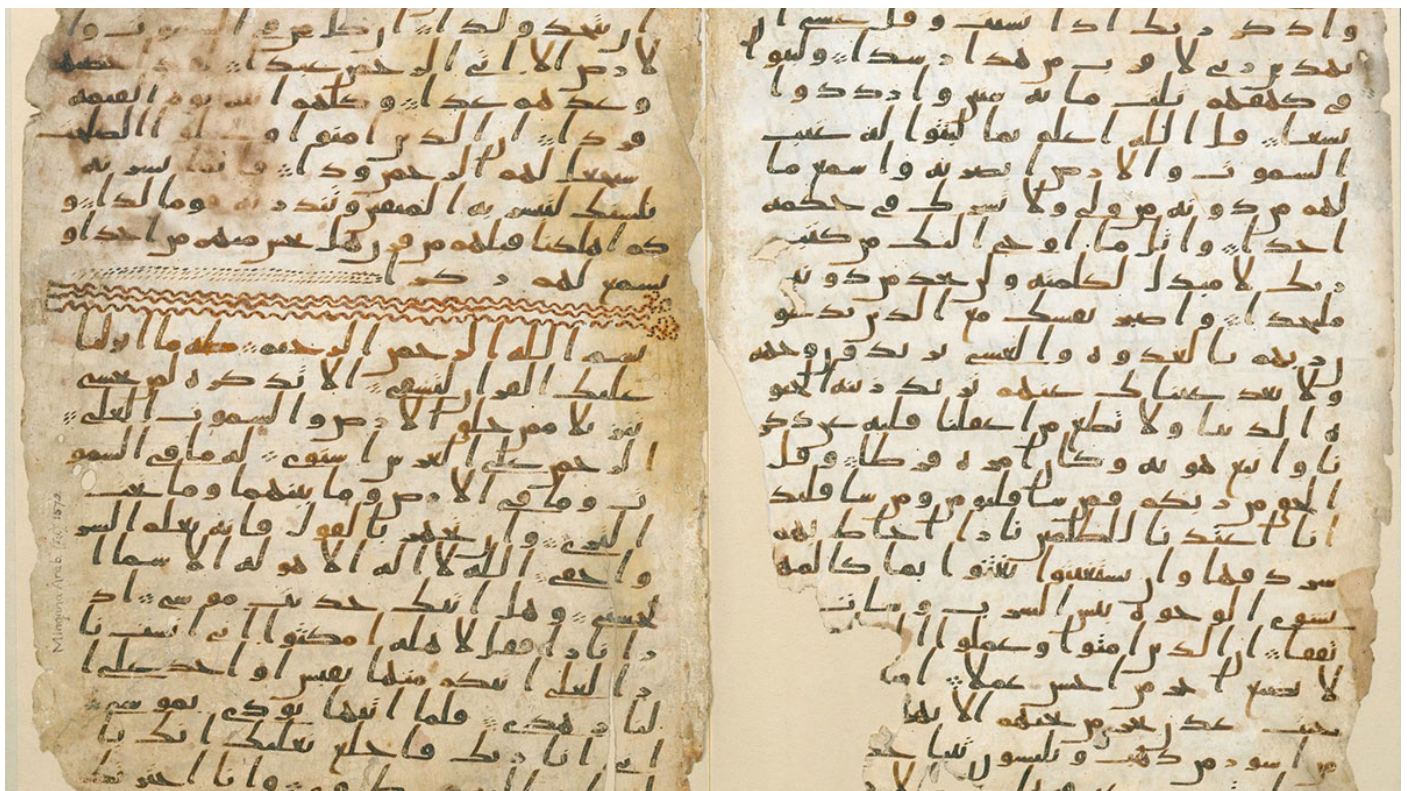 واذكر ربك اذا نسيت وقل عسى ا
يهدين ربي لاقرب من هذا رشدا ولبثوا
في كهفهم ثلث مائة سنين وازددوا
تسعا قل الله اعلم بما لبثوا له غيب
السموت والارض ابصر به واسمع ما
لهم من دونه من ولي ولا يشرك في حكمه
احدا واتل ما اوحي اليك من كتب
ربك لا مبدل لكلمته ولن تجد من دونه
ملتحدا واصبر نفسك مع الذين يدعو
ن ربهم بالغدوة والعشي يريدون وجهه
ولا تعد عيناك عنهم تريد زينة الحيو
ة الدنيا ولا تطع من اغفلنا قلبه عن ذكر
نا واتبع هويه وكان امره فرطا وقل
الحق من ربكم فمن شا فليومن ومن شا فليك
انا اعتدنا للظلمين نارا احاط بهم
سردقها وان يستغيثوا يغثوا بما كالمهل
يشوي الوجوه بئس الشرب وسات
تفقا ان الذين امنوا وعملوا ا
لا نضيع اجر من احسن عملا او
جنت عدن تجري من تحتهم الانها
من اسور من ذهب ويلبسون ثيابا خ
ان يتخذ ولدا ان كل من في السموت وا
لارض الا اتي الرحمن عبدا لقد احصيهم
وعدهم عدا وكلهم اتيه يوم القيمة
فردا ان الذين امنوا وعملوا الصلحت
سيجعل لهم الرحمن ودا فانما يسرنه
بلسنك لتبشر به المتقين وتنذر به قوما لدا و
كم اهلكنا قبلهم من قرن هل تحس منهم من احد او
تسمع لهم ركزا
بسم الله الرحمن الرحيم طه ما انزلنا
عليك القران لتشقى الا تذكرة لمن يخشى
تنزيلا ممن خلق الارض والسموت العلى
الرحمن على العرش استوى له ما في السمو
ت وما في الارض وما بينهما وما تحت
الثرى وان تجهر بالقول فانه يعلم السر
واخفى الله لا اله الا هو له الاسما ا
لحسنى وهل اتيك حديث موسى اذ
را نارا فقال لاهله امكثوا اني انست نا
را لعلي اتيكم منها بقبس او اجد على ا
لنار هدى فلما اتيها نودي يموسى
اني انا ربك فاخلع نعليك انك با
وانا اخترتك
Mingana Arab. 1572